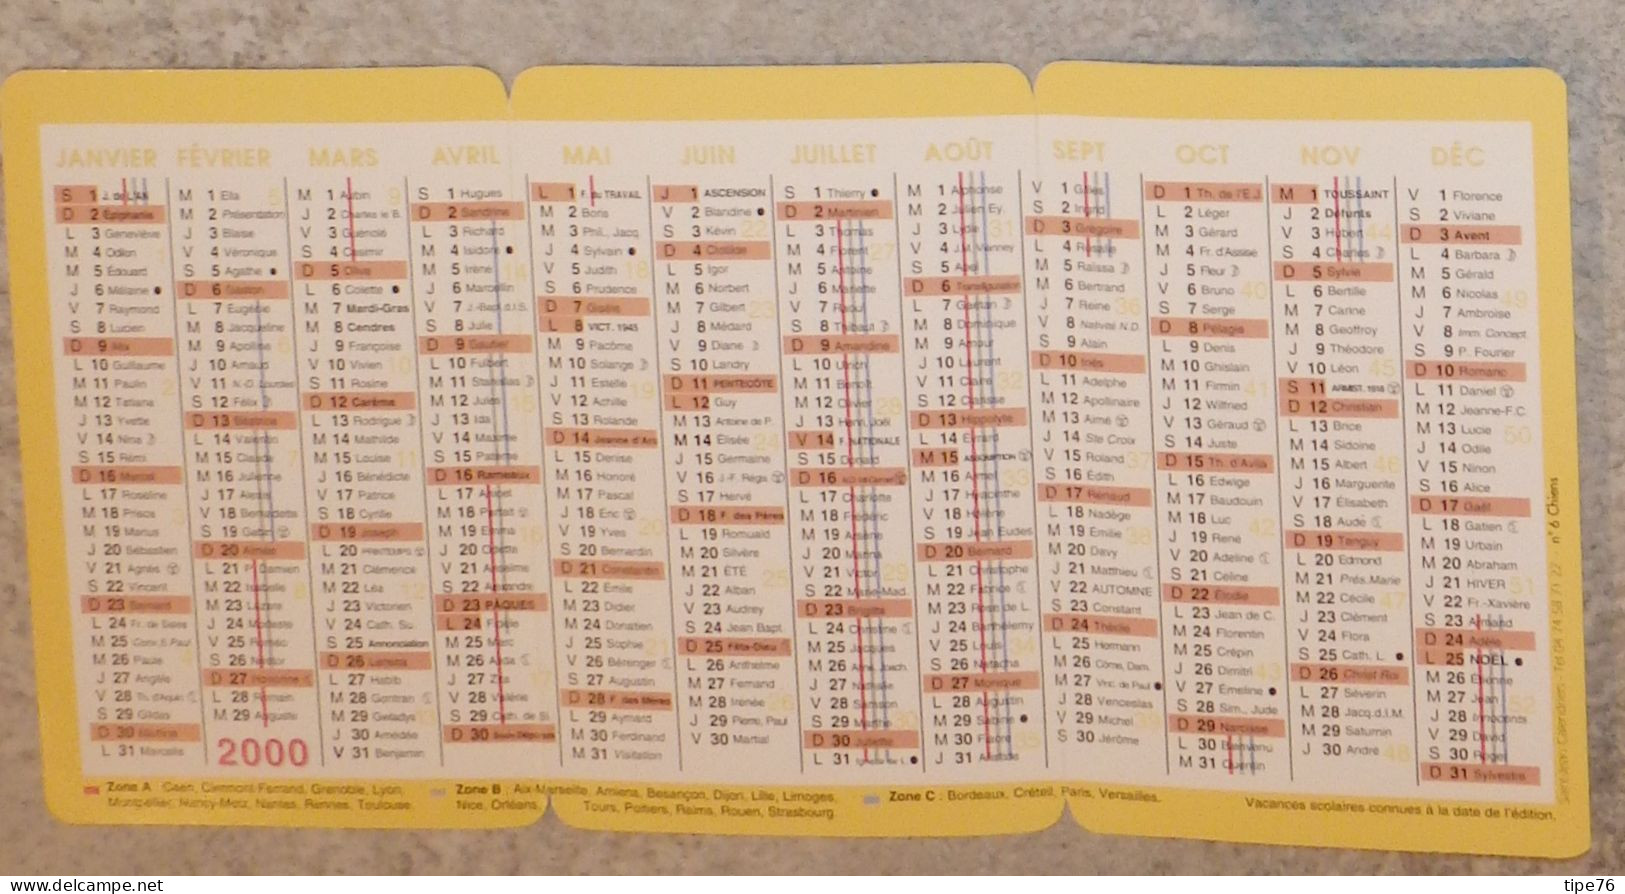 JANVIER FÉVRIER MARS AVRIL MAI JUIN JUILLET AOÛT SEPT OCT NOV DÉC
S 1 J. de L'AN
D 2 Epiphanie
L 3 Geneviève
M 4 Odilon
M 5 Édouard
J 6 Mélaine
V 7 Raymond
S 8 Lucien
D 9 Alix
L 10 Guillaume
M 11 Paulin
M 12 Tatiana
J 13 Yvette
V 14 Nina
S 15 Rémi
D 16 Marcel
L 17 Roseline
M 18 Prisca
M 19 Marius
J 20 Sébastien
V 21 Agnès
S 22 Vincent
D 23 Barnard
L 24 Fr. de Sales
M 25 Conv. S. Paul
M 26 Paule
J 27 Angèle
V 28 Th. d'Aquin
S 29 Gildas
D 30 Martine
L 31 Marcelle
M 1 Ella
M 2 Présentation
J 3 Blaise
V 4 Véronique
S 5 Agathe
D 6 Gaston
L 7 Eugénie
M 8 Jacqueline
M 9 Apolline
J 10 Arnaud
V 11 N.-D. Lourdes
S 12 Félix
D 13 Béatrice
L 14 Valentin
M 15 Claude
M 16 Julienne
J 17 Alexis
V 18 Bernadette
S 19 Gabin
D 20 Aimée
L 21 P. Damien
M 22 Isabelle
M 23 Lazare
J 24 Modeste
V 25 Roméo
S 26 Nestor
D 27 Honorine
L 28 Romain
M 29 Auguste
2000
M 1 Aubin
J 2 Charles le B.
V 3 Guénolé
S 4 Casimir
D 5 Olive
L 6 Colette
M 7 Mardi-Gras
M 8 Cendres
J 9 Françoise
V 10 Vivien
S 11 Rosine
D 12 Carême
L 13 Rodrigue
M 14 Mathilde
M 15 Louise
J 16 Bénédicte
V 17 Patrice
S 18 Cyrille
D 19 Joseph
L 20 PRINTEMPS
M 21 Clémence
M 22 Léa
J 23 Victorien
V 24 Cath. Su.
S 25 Annonciation
D 26 Larissa
L 27 Habib
M 28 Gontran
M 29 Gwladys
J 30 Amédée
V 31 Benjamin
S 1 Hugues
D 2 Sandrine
L 3 Richard
M 4 Isidore
M 5 Irène
J 6 Marcellin
V 7 J.-Bapt. d.l.S.
S 8 Julie
D 9 Gautier
L 10 Fulbert
M 11 Stanislas
M 12 Jules
J 13 Ida
V 14 Maxime
S 15 Paterne
D 16 Rameaux
L 17 Anicet
M 18 Parfait
M 19 Emma
J 20 Odette
V 21 Anselme
S 22 Alexandre
D 23 PÂQUES
L 24 Fidèle
M 25 Marc
M 26 Alida
J 27 Zita
V 28 Valérie
S 29 Cath. de Si.
D 30 Souv. Déportés
L 1 F. du TRAVAIL
M 2 Boris
M 3 Phil., Jacq.
J 4 Sylvain
V 5 Judith
S 6 Prudence
D 7 Gisèle
L 8 VICT. 1945
M 9 Pacôme
M 10 Solange
J 11 Estelle
V 12 Achille
S 13 Rolande
D 14 Jeanne d'Arc
L 15 Denise
M 16 Honoré
M 17 Pascal
J 18 Éric
V 19 Yves
S 20 Bernardin
D 21 Constantin
L 22 Émile
M 23 Didier
M 24 Donatien
J 25 Sophie
V 26 Bérenger
S 27 Augustin
D 28 F. des Mères
L 29 Aymard
M 30 Ferdinand
M 31 Visitation
J 1 ASCENSION
V 2 Blandine
S 3 Kévin
D 4 Clotilde
L 5 Igor
M 6 Norbert
M 7 Gilbert
J 8 Médard
V 9 Diane
S 10 Landry
D 11 PENTECÔTE
L 12 Guy
M 13 Antoine de P.
M 14 Élisée
J 15 Germaine
V 16 J.-F. Régis
S 17 Hervé
D 18 F. des Pères
L 19 Romuald
M 20 Silvère
M 21 ÉTÉ
J 22 Alban
V 23 Audrey
S 24 Jean Bapt.
D 25 Fête-Dieu
L 26 Anthelme
M 27 Fernand
M 28 Irénée
J 29 Pierre, Paul
V 30 Martial
S 1 Thierry
D 2 Martinien
L 3 Thomas
M 4 Florent
M 5 Antoine
J 6 Mariette
V 7 Raoul
S 8 Thibaut
D 9 Amandine
L 10 Ulrich
M 11 Benoît
M 12 Olivier
J 13 Henri, Joël
V 14 F. NATIONALE
S 15 Donald
D 16 N.D. Mt Carmel
L 17 Charlotte
M 18 Frédéric
M 19 Arsène
J 20 Marina
V 21 Victor
S 22 Marie-Mad.
D 23 Brigitte
L 24 Christine
M 25 Jacques
M 26 Anne, Joach.
J 27 Nathalie
V 28 Samson
S 29 Marthe
D 30 Juliette
L 31 Ignace de L.
M 1 Alphonse
M 2 Julien Ey.
J 3 Lydie
V 4 J.M. Vianney
S 5 Abel
D 6 Transfiguration
L 7 Gaétan
M 8 Dominique
M 9 Amour
J 10 Laurent
V 11 Claire
S 12 Clarisse
D 13 Hippolyte
L 14 Evrard
M 15 ASSOMPTION
M 16 Armel
J 17 Hyacinthe
V 18 Hélène
S 19 Jean Eudes
D 20 Bernard
L 21 Christophe
M 22 Fabrice
M 23 Rose de L.
J 24 Barthélemy
V 25 Louis
S 26 Natacha
D 27 Monique
L 28 Augustin
M 29 Sabine
M 30 Fiacre
J 31 Aristide
V 1 Gilles
S 2 Ingrid
D 3 Grégoire
L 4 Rosalie
M 5 Raïssa
M 6 Bertrand
J 7 Reine
V 8 Nativité N.D.
S 9 Alain
D 10 Inès
L 11 Adelphe
M 12 Apollinaire
M 13 Aimé
J 14 Ste Croix
V 15 Roland
S 16 Édith
D 17 Renaud
L 18 Nadège
M 19 Émilie
M 20 Davy
J 21 Matthieu
V 22 AUTOMNE
S 23 Constant
D 24 Thècle
L 25 Hermann
M 26 Côme, Dam.
M 27 Vinc. de Paul
J 28 Venceslas
V 29 Michel
S 30 Jérôme
D 1 Th. de l'E.J.
L 2 Léger
M 3 Gérard
M 4 Fr. d'Assise
J 5 Fleur
V 6 Bruno
S 7 Serge
D 8 Pélagie
L 9 Denis
M 10 Ghislain
M 11 Firmin
J 12 Wilfried
V 13 Géraud
S 14 Juste
D 15 Th. d'Avila
L 16 Edwige
M 17 Baudouin
M 18 Luc
J 19 René
V 20 Adeline
S 21 Céline
D 22 Élodie
L 23 Jean de C.
M 24 Florentin
M 25 Crépin
J 26 Dimitri
V 27 Emeline
S 28 Sim., Jude
D 29 Narcisse
L 30 Bienvenu
M 31 Quentin
M 1 TOUSSAINT
J 2 Défunts
V 3 Hubert
S 4 Charles
D 5 Sylvie
L 6 Bertille
M 7 Carine
M 8 Geoffroy
J 9 Théodore
V 10 Léon
S 11 ARMIST. 1918
D 12 Christian
L 13 Brice
M 14 Sidoine
M 15 Albert
J 16 Marguerite
V 17 Élisabeth
S 18 Aude
D 19 Tanguy
L 20 Edmond
M 21 Prés. Marie
M 22 Cécile
J 23 Clément
V 24 Flora
S 25 Cath. L.
D 26 Christ Roi
L 27 Séverin
M 28 Jacq.d.l.M.
M 29 Saturnin
J 30 André
V 1 Florence
S 2 Viviane
D 3 Avent
L 4 Barbara
M 5 Gérald
M 6 Nicolas
J 7 Ambroise
V 8 Imm. Concept.
S 9 P. Fourier
D 10 Romaric
L 11 Daniel
M 12 Jeanne-F.C.
M 13 Lucie
J 14 Odile
V 15 Ninon
S 16 Alice
D 17 Gaël
L 18 Gatien
M 19 Urbain
M 20 Abraham
J 21 HIVER
V 22 Fr.-Xavière
S 23 Armand
D 24 Adèle
L 25 NOËL
M 26 Etienne
M 27 Jean
J 28 Innocents
V 29 David
S 30 Roger
D 31 Sylvestre
Zone A : Caen, Clermont-Ferrand, Grenoble, Lyon,
Montpellier, Nancy-Metz, Nantes, Rennes, Toulouse.
Zone B : Aix-Marseille, Amiens, Besançon, Dijon, Lille, Limoges,
Nice, Orléans, Tours, Poitiers, Reims, Rouen, Strasbourg.
Zone C : Bordeaux, Créteil, Paris, Versailles.
Vacances scolaires connues à la date de l'édition.
Calendriers - Tél 04 74 98 71 22 n° 6 Chiens
www.delcampe.net
tipe76